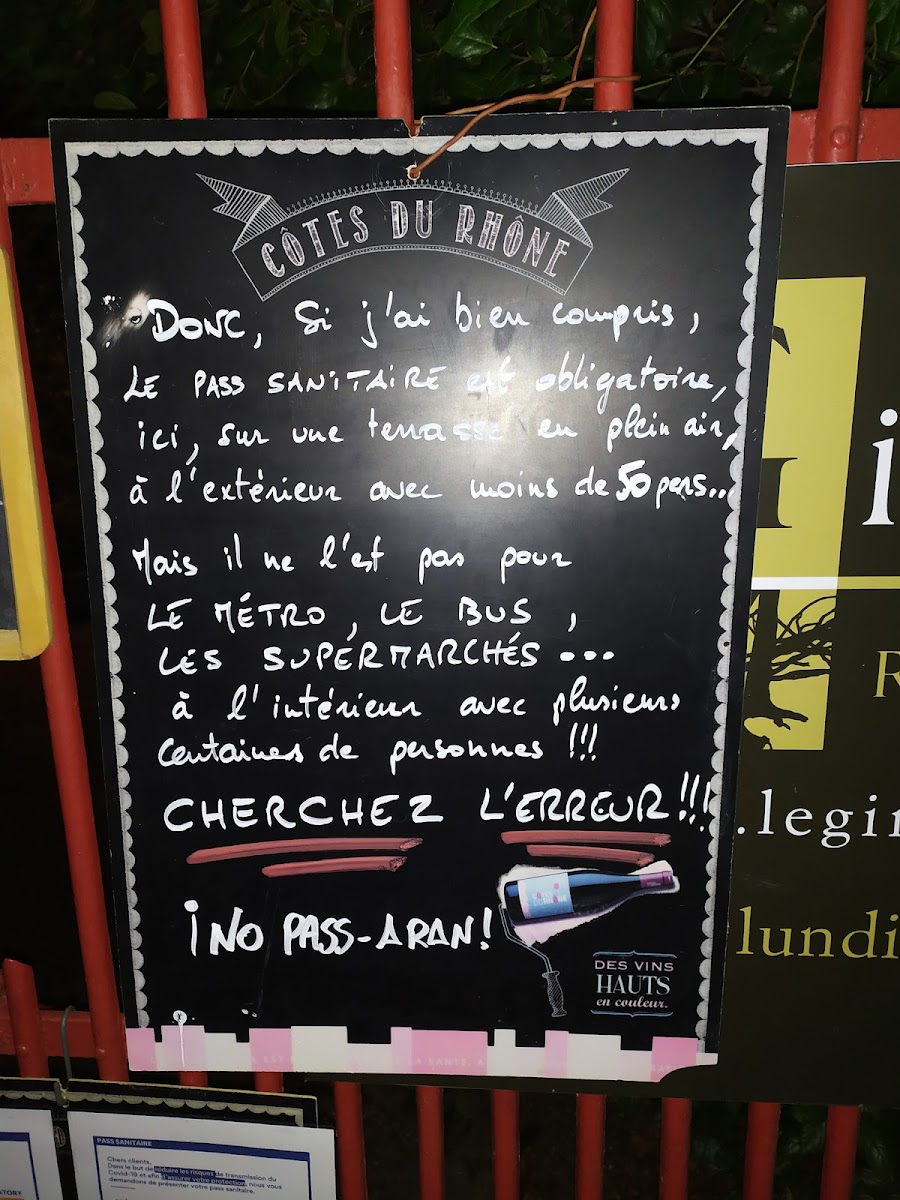 CÔTES DU RHÔNE
DONC, Si j'ai bien compris,
LE PASS SANITAIRE est obligatoire,
ici, sur une terrasse en plein air,
à l'extérieur avec moins de 50 pers...
Mais il ne l'est pas pour
LE MÉTRO, LE BUS,
LES SUPERMARCHÉS...
à l'intérieur avec plusieurs
centaines de personnes !!!
CHERCHEZ L'ERREUR!!!
¡NO PASS-ARAN!
DES VINS
HAUTS
en couleur.
i
R
.legin
lundi
PASS SANITAIRE
Chers clients,
Dans le but de réduire les risques de transmission du
Covid-19 et afin d'assurer votre protection, nous vous
demandons de présenter votre pass sanitaire.